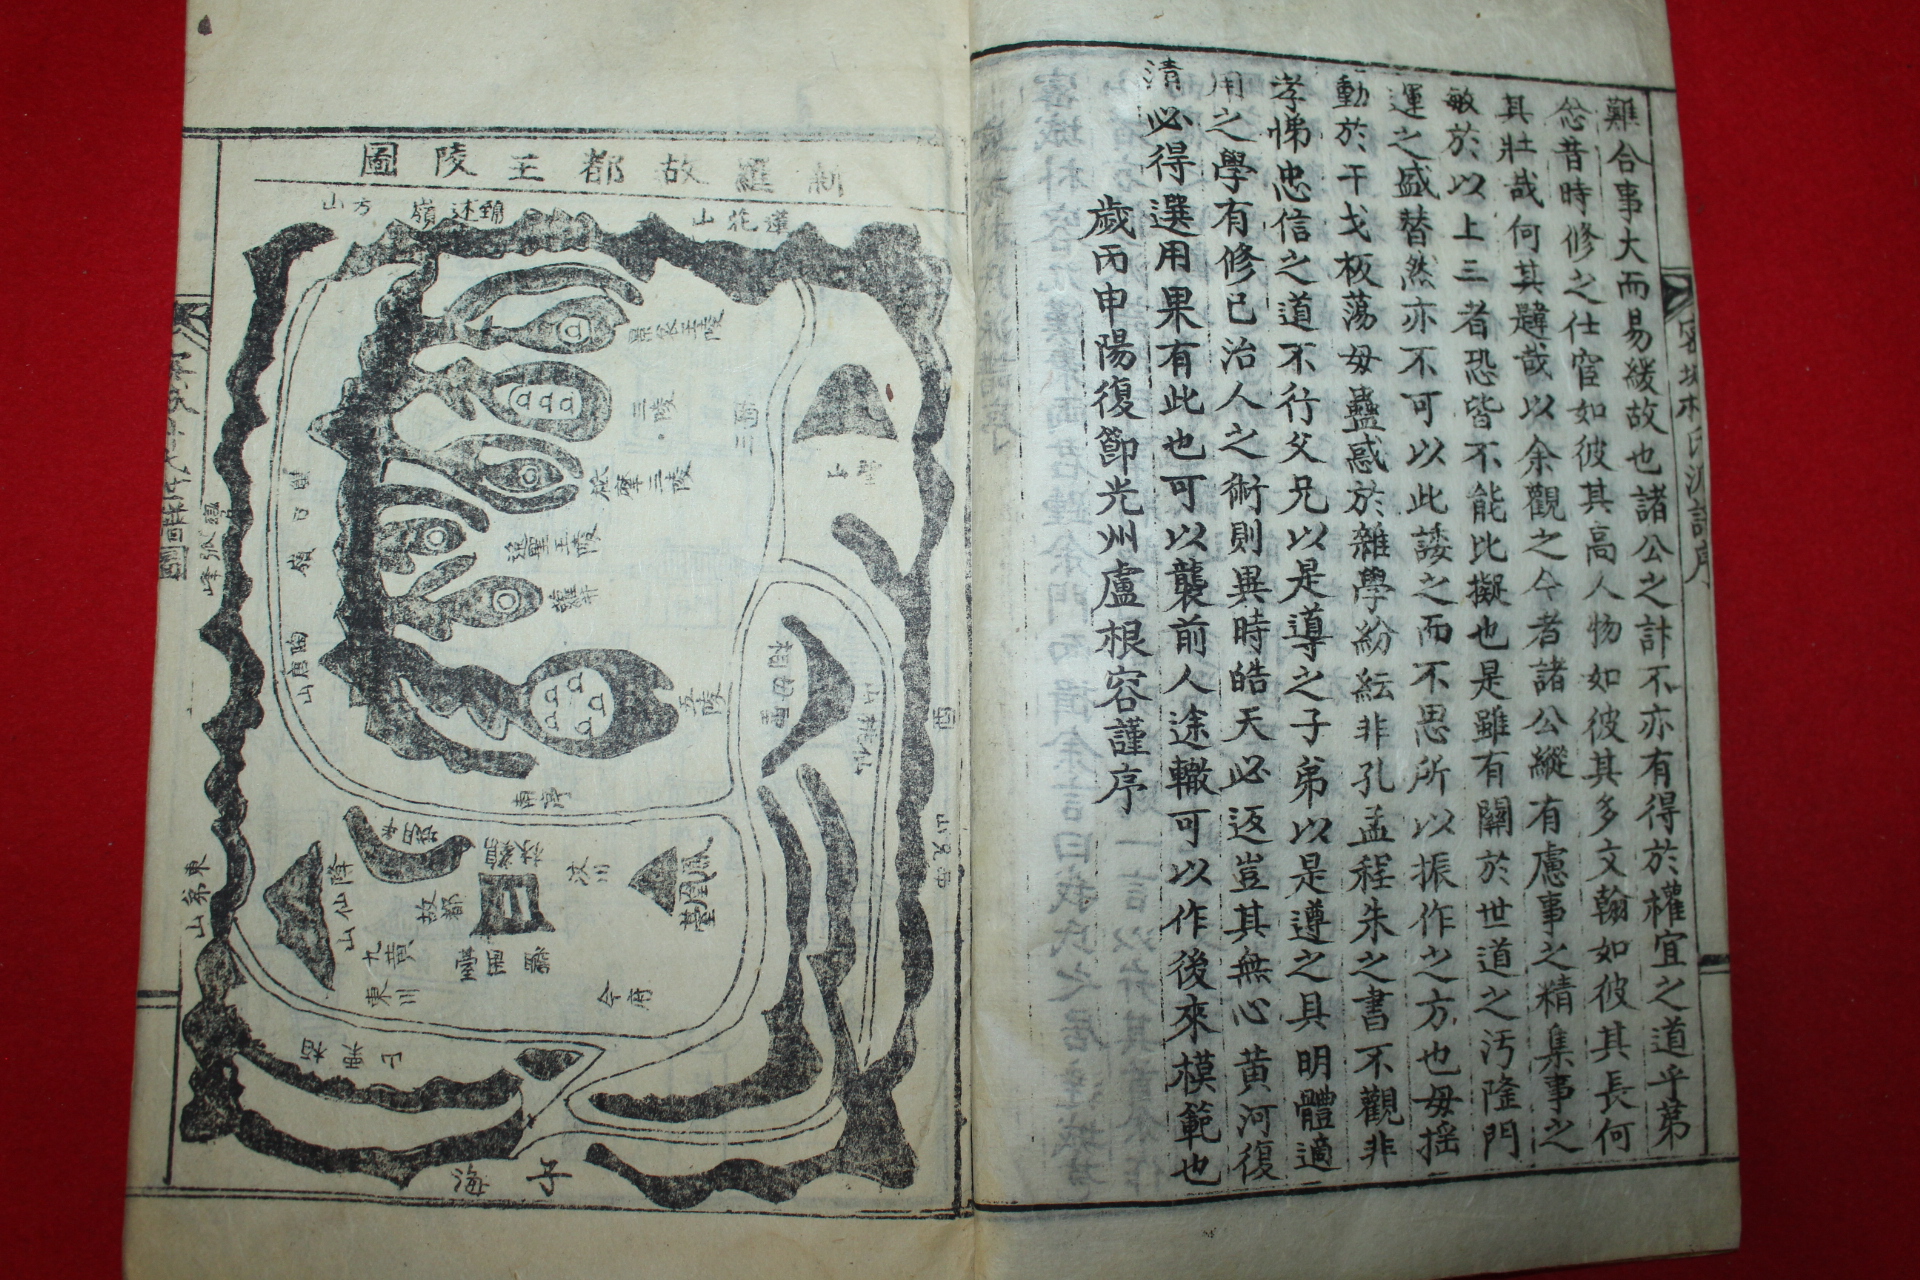 難合事大而易緩故也諸公之計不亦有得於權宜之道乎第
忩昔時修之仕宦如彼其高人物如彼其多文翰如彼其長何
其壯哉何其韙哉以余觀之今者諸公縱有慮事之精集事之
敏於以上三者恐皆不能比擬也是雖有關於世道之汚隆門
運之盛替然亦不可以此諉之而不思所以振作之方也毋搖
動於干戈板蕩毋蠱惑於雜學紛紜非孔孟程朱之書不觀非
孝悌忠信之道不行父兄以是導之子弟以是遵之具明體適
用之學有修己治人之術則異時皓天必返豈其無心黃河復
清必得選用果有此也可以襲前人途轍可以作後來模範也
歲丙申陽復節光州盧根容謹序
新羅故都王陵圖
蓮花山
鵄述嶺
方山
景哀王陵
三陵
祗摩王陵
逸聖王陵
蘿井
五陵
南亭
陶唐山
仙桃山
西
鳳凰臺
汶川
故都
半月城
降仙山
九黃
東川
今府
東弟山
西兄山